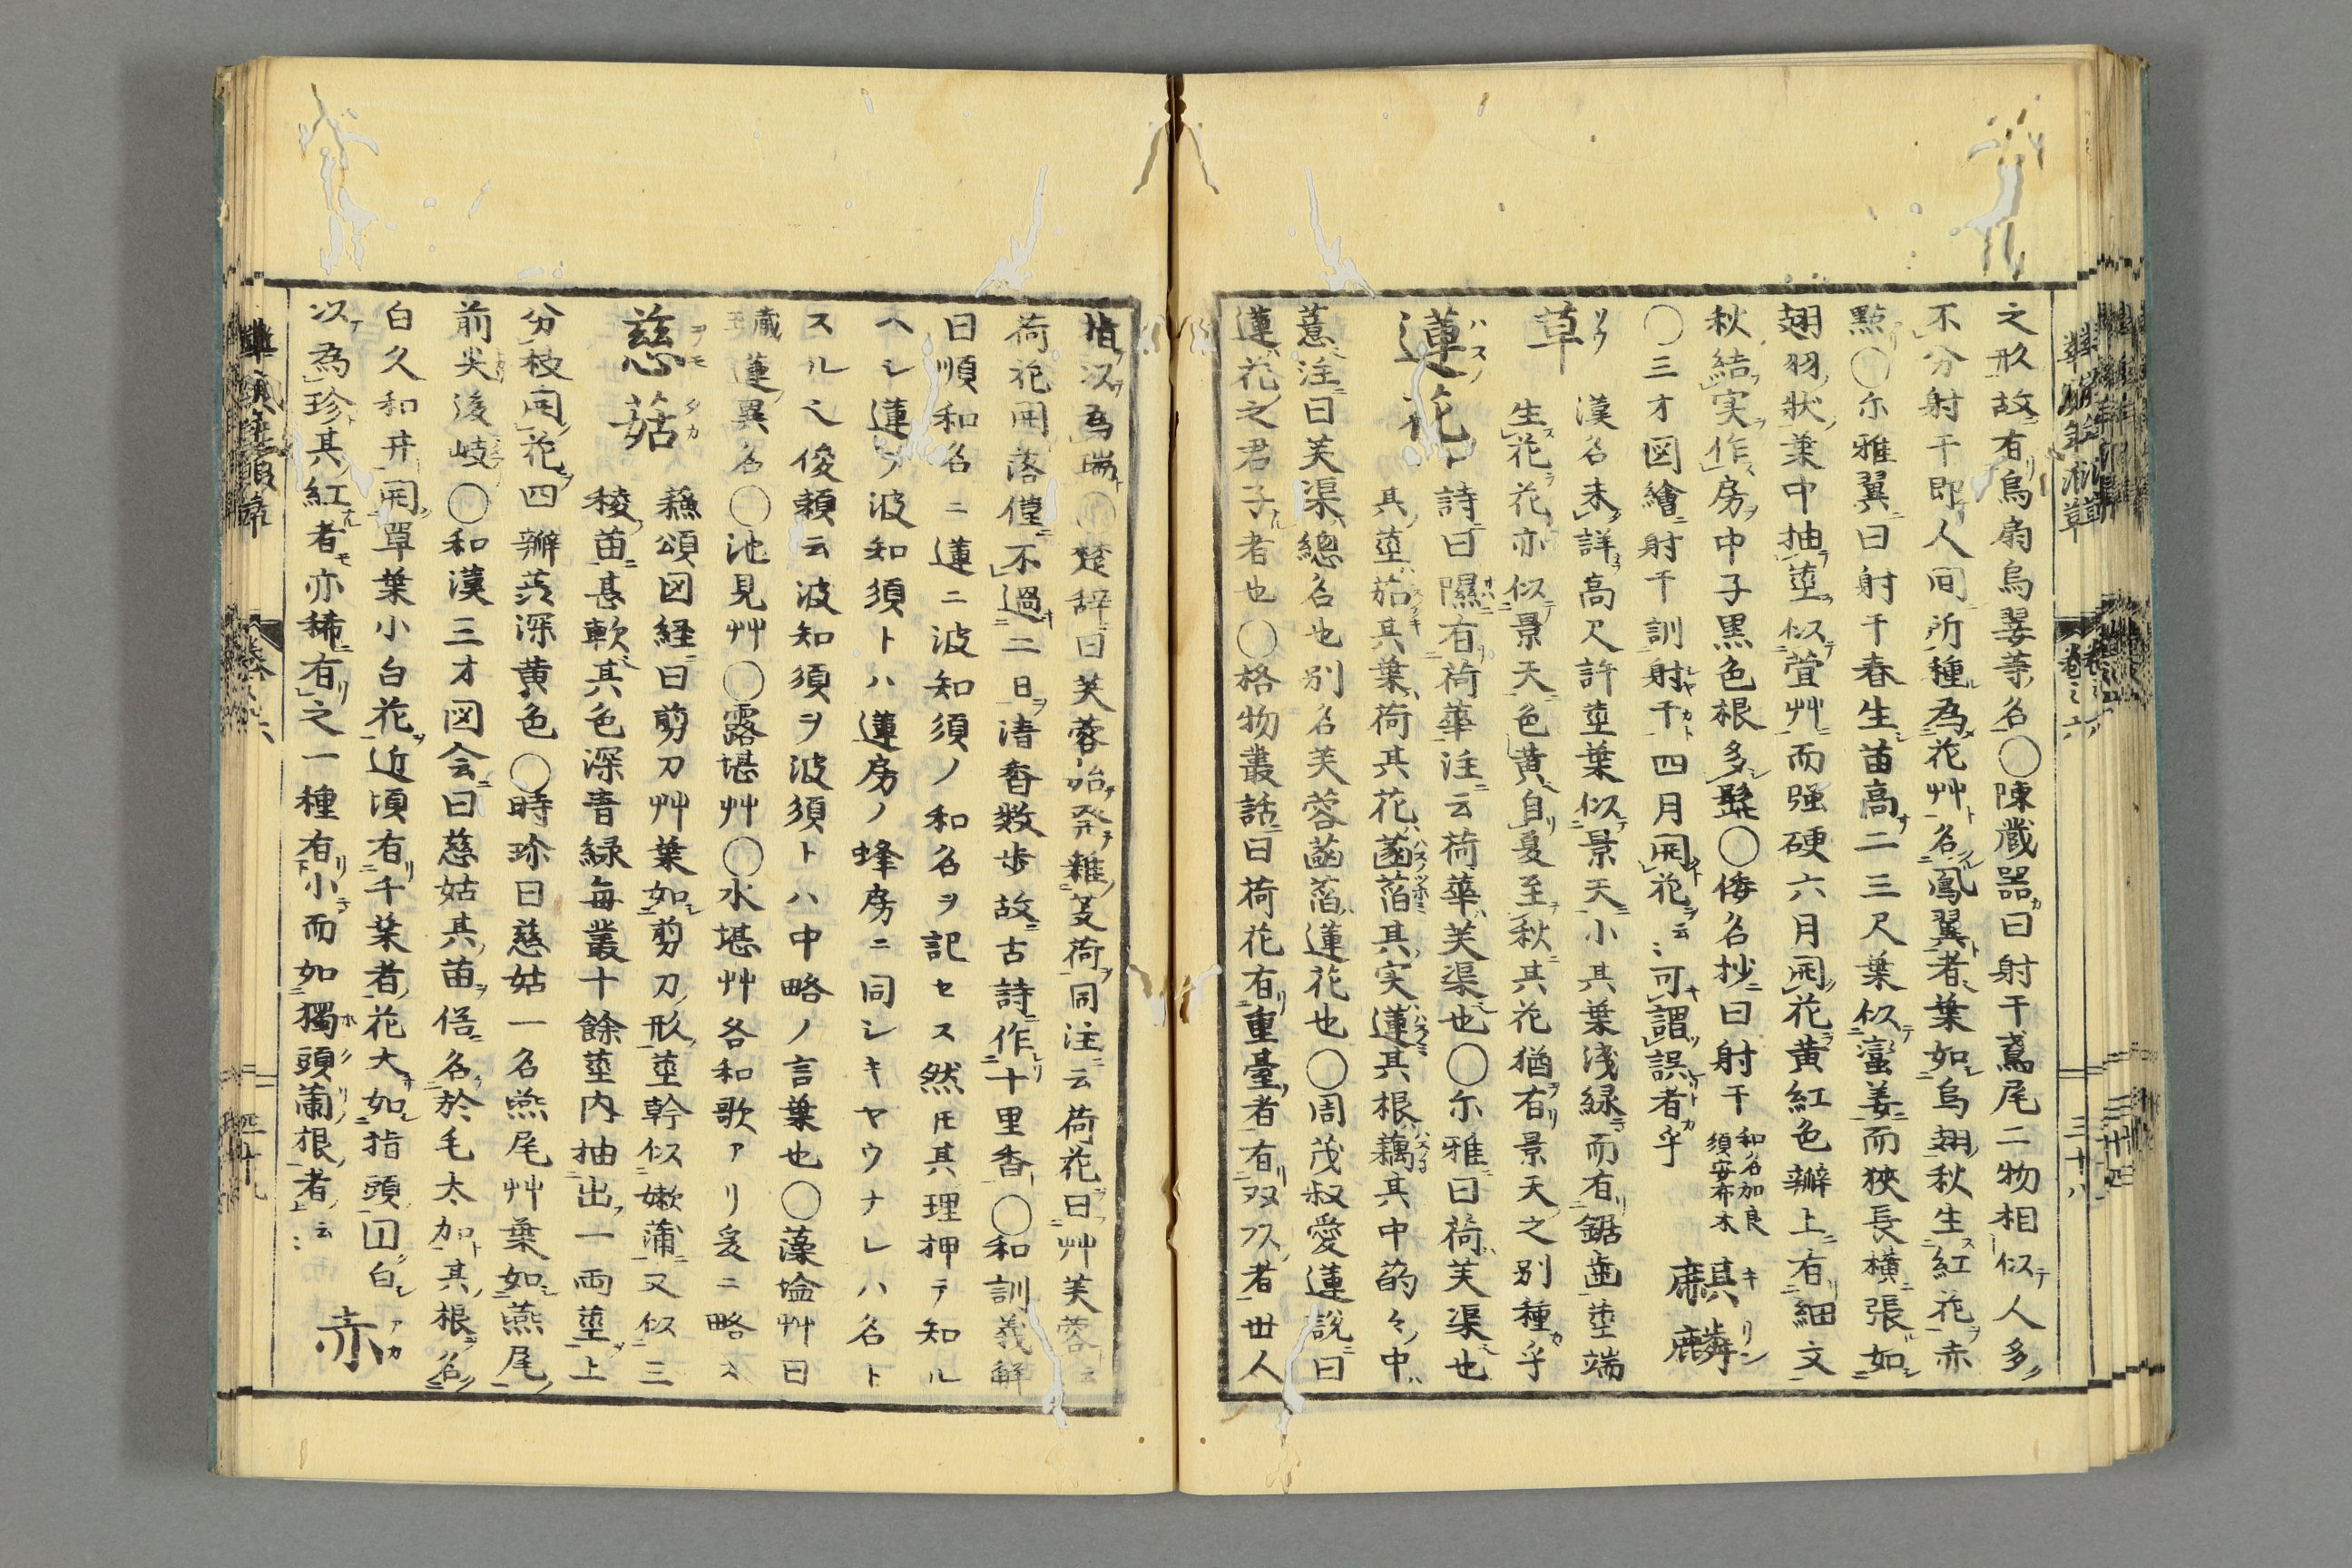 之形故有烏扇烏翣等名○陳蔵噐曰射干鳶尾二物相似人多
不分射干即人间所種為花艸名鳳翼者葉如烏翅秋生紅花赤
點○尓雅翼曰射干春生苗高二三尺葉似蛮姜而狹長橫張如
翅羽狀葉中抽莖似萱艸而强硬六月開花黄紅色瓣上有細文
秋結实作房中子黒色根多鬚○倭名抄曰射干和名加良須安布木
○三才図繪射干訓射干四月開花云〻可謂誤者乎
麒麟
草
漢名未詳高尺許莖葉似景天小其葉浅緑而有鋸歯莖端
生花花亦似景天色黄自夏至秋其花猶有景天之別種乎
蓮花
詩曰隰有荷華注云荷華芙渠也○尓雅曰荷芙渠也
其莖茄其葉荷其花菡萏其实蓮其根藕其中菂々中
薏注曰芙渠總名也別名芙蓉菡萏蓮花也○周茂叔愛蓮説曰
蓮花之君子者也○格物叢話曰荷花有重臺者有双頭者世人
植以為端○楚辞曰芙蓉始発雜芰荷同注云荷花曰艸芙蓉
荷花開落僅不過二日清香数歩故古詩作十里香○和訓義解
曰順和名ニ蓮ニ波知須ノ和名ヲ記セス然𪜈其理押テ知ル
ヘシ蓮ヲ波知須トハ蓮房ノ蜂房ニ同シキヤウナレハ名ト
スルヘ俊頼云波知須ヲ波須トハ中略ノ言葉也○藻塩艸曰
蓮異名○池見艸○露堪艸○水堪艸各和歌アリ爰ニ略ス
慈菇
蘓頌図経曰剪刀艸葉如剪刀形莖幹似嫩蒲又似三
稜苗甚軟其色深青緑毎叢十餘莖内抽出一両莖上
分枝開花四瓣蕊深黄色○時珍曰慈姑一名燕尾艸葉如燕尾
前尖後岐○和漢三才図会曰慈姑其苗俗名於毛太加其根名
白久和井開單葉小白花近頃有千葉者花大如指頭囙白
以為珍其紅者亦稀有之一種有小而如獨頭蘭根者云〻
赤